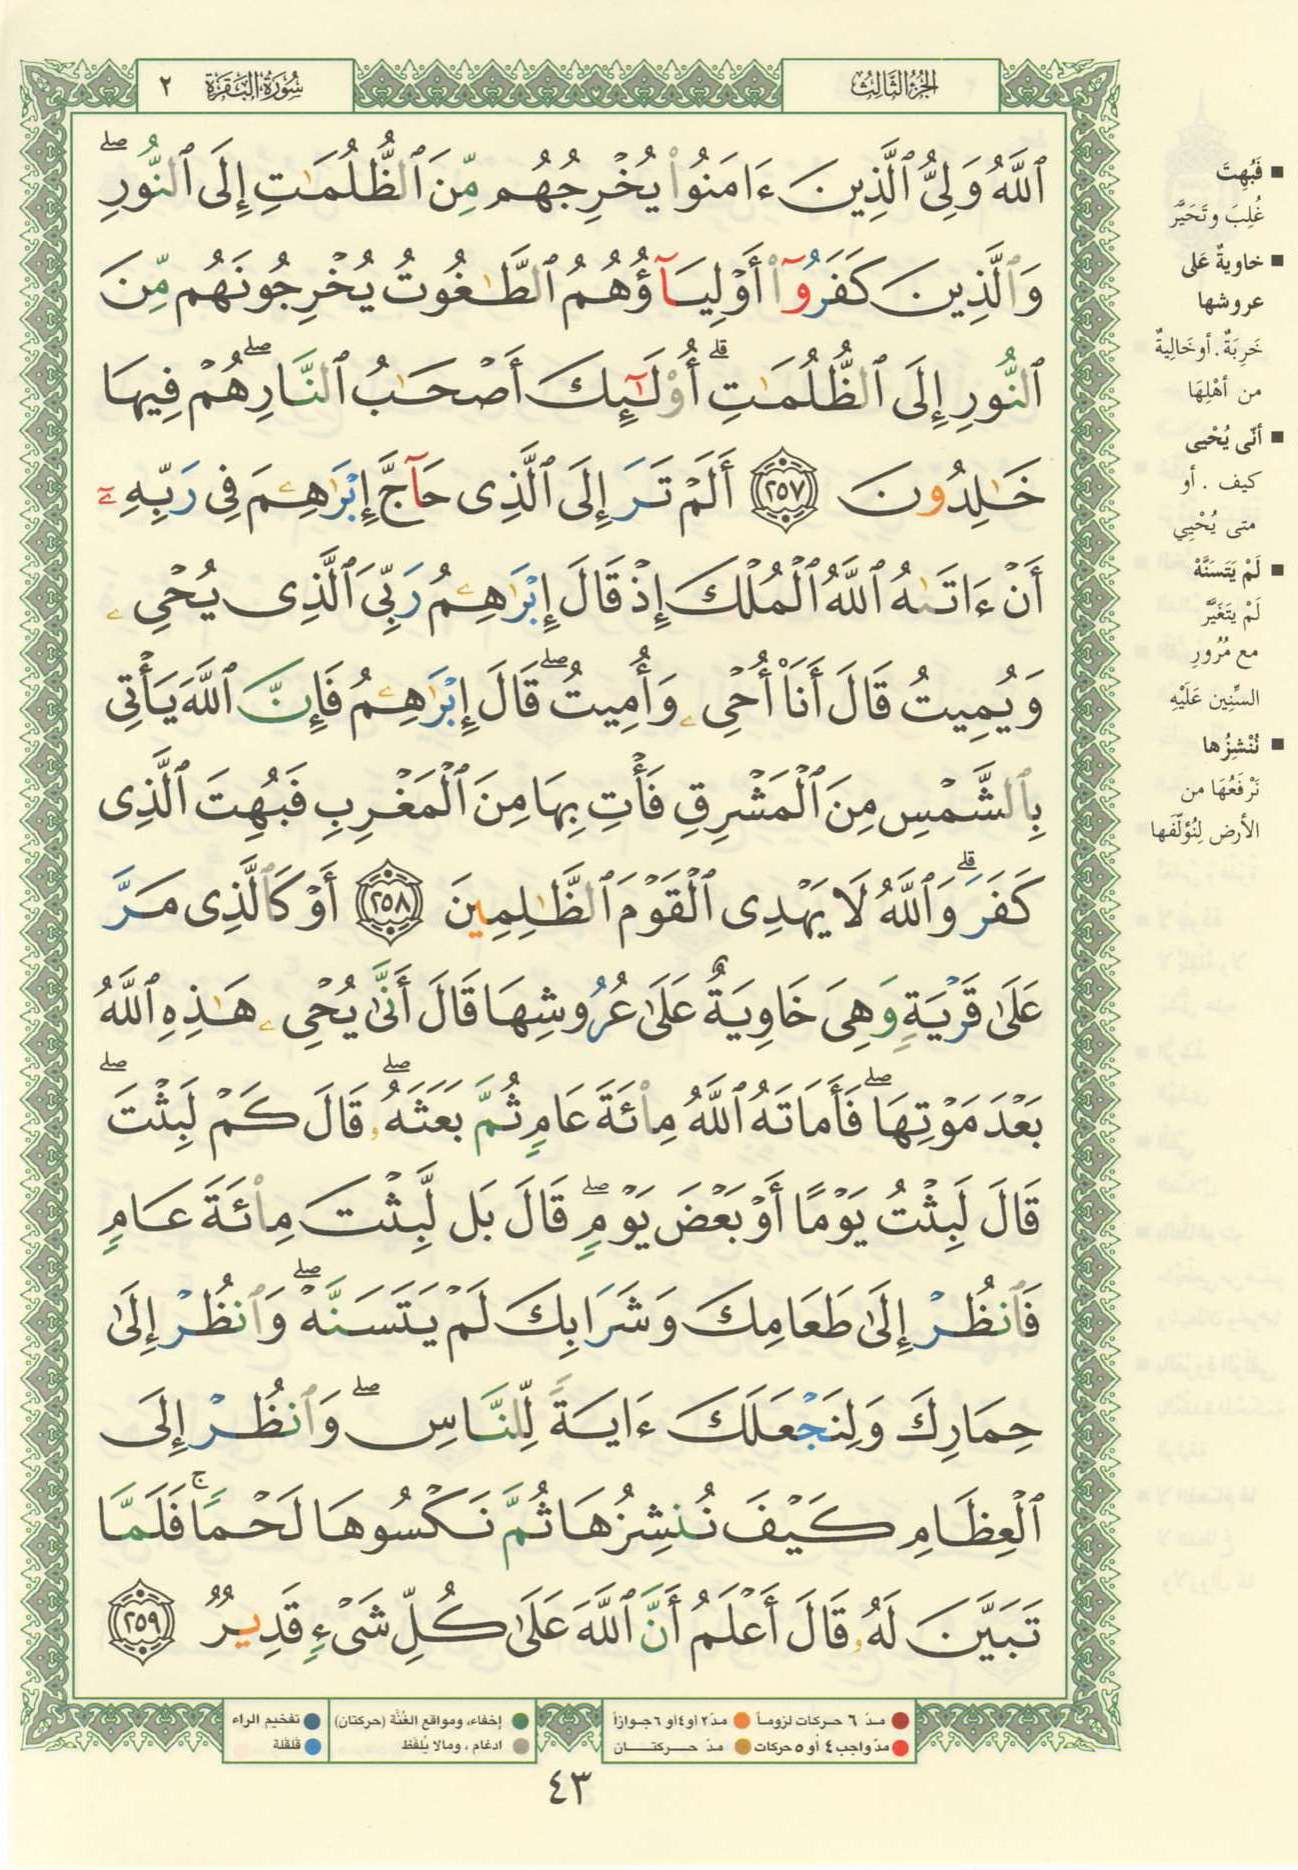 الجزء الثالث
سورة البقرة ٢
ٱللَّهُ وَلِىُّ ٱلَّذِينَ ءَامَنُوا۟ يُخْرِجُهُم مِّنَ ٱلظُّلُمَٰتِ إِلَى ٱلنُّورِ ۖ
وَٱلَّذِينَ كَفَرُوٓا۟ أَوْلِيَآؤُهُمُ ٱلطَّٰغُوتُ يُخْرِجُونَهُم مِّنَ
ٱلنُّورِ إِلَى ٱلظُّلُمَٰتِ ۗ أُو۟لَٰٓئِكَ أَصْحَٰبُ ٱلنَّارِ ۖ هُمْ فِيهَا
خَٰلِدُونَ ٢٥٧ أَلَمْ تَرَ إِلَى ٱلَّذِى حَآجَّ إِبْرَٰهِۦمَ فِى رَبِّهِۦٓ
أَنْ ءَاتَىٰهُ ٱللَّهُ ٱلْمُلْكَ إِذْ قَالَ إِبْرَٰهِۦمُ رَبِّىَ ٱلَّذِى يُحْىِۦ
وَيُمِيتُ قَالَ أَنَا۠ أُحْىِۦ وَأُمِيتُ ۖ قَالَ إِبْرَٰهِۦمُ فَإِنَّ ٱللَّهَ يَأْتِى
بِٱلشَّمْسِ مِنَ ٱلْمَشْرِقِ فَأْتِ بِهَا مِنَ ٱلْمَغْرِبِ فَبُهِتَ ٱلَّذِى
كَفَرَ ۗ وَٱللَّهُ لَا يَهْدِى ٱلْقَوْمَ ٱلظَّٰلِمِينَ ٢٥٨ أَوْ كَٱلَّذِى مَرَّ
عَلَىٰ قَرْيَةٍ وَهِىَ خَاوِيَةٌ عَلَىٰ عُرُوشِهَا قَالَ أَنَّىٰ يُحْىِۦ هَٰذِهِ ٱللَّهُ
بَعْدَ مَوْتِهَا ۖ فَأَمَاتَهُ ٱللَّهُ مِا۟ئَةَ عَامٍ ثُمَّ بَعَثَهُۥ ۖ قَالَ كَمْ لَبِثْتَ ۖ
قَالَ لَبِثْتُ يَوْمًا أَوْ بَعْضَ يَوْمٍ ۖ قَالَ بَل لَّبِثْتَ مِا۟ئَةَ عَامٍ
فَٱنظُرْ إِلَىٰ طَعَامِكَ وَشَرَابِكَ لَمْ يَتَسَنَّهْ ۖ وَٱنظُرْ إِلَىٰ
حِمَارِكَ وَلِنَجْعَلَكَ ءَايَةً لِّلنَّاسِ ۖ وَٱنظُرْ إِلَى
ٱلْعِظَامِ كَيْفَ نُنشِزُهَا ثُمَّ نَكْسُوهَا لَحْمًا ۚ فَلَمَّا
تَبَيَّنَ لَهُۥ قَالَ أَعْلَمُ أَنَّ ٱللَّهَ عَلَىٰ كُلِّ شَىْءٍ قَدِيرٌ ٢٥٩
■ فَبُهِتَ
غُلِبَ وتَحَيَّرَ
■ خاويةٌ عَلى
عروشها
خَرِبَةٌ. أو خَالِيةٌ
من أهْلِهَا
■ أنّى يُحْيى
كيف . أو
متى يُحْيِي
■ لَمْ يَتَسَنَّهْ
لَمْ يتَغَيَّرْ
مع مُرُورِ
السِّنِين عَلَيْهِ
■ نُنْشِزُها
نَرْفَعُهَا من
الأرض لِنُؤلِّفَها
مدّ ٦ حركات لزوماً
مدّ ٢ أو ٤ أو ٦ جوازاً
إخفاء، ومواقع الغُنَّة (حركتان)
تفخيم الراء
مدّ واجب ٤ أو ٥ حركات
مدّ حركتان
ادغام ، ومالا يُلفَظ
قلقلة
٤٣